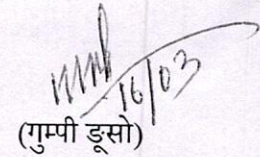 16/03
(गुम्पी ङूसो)